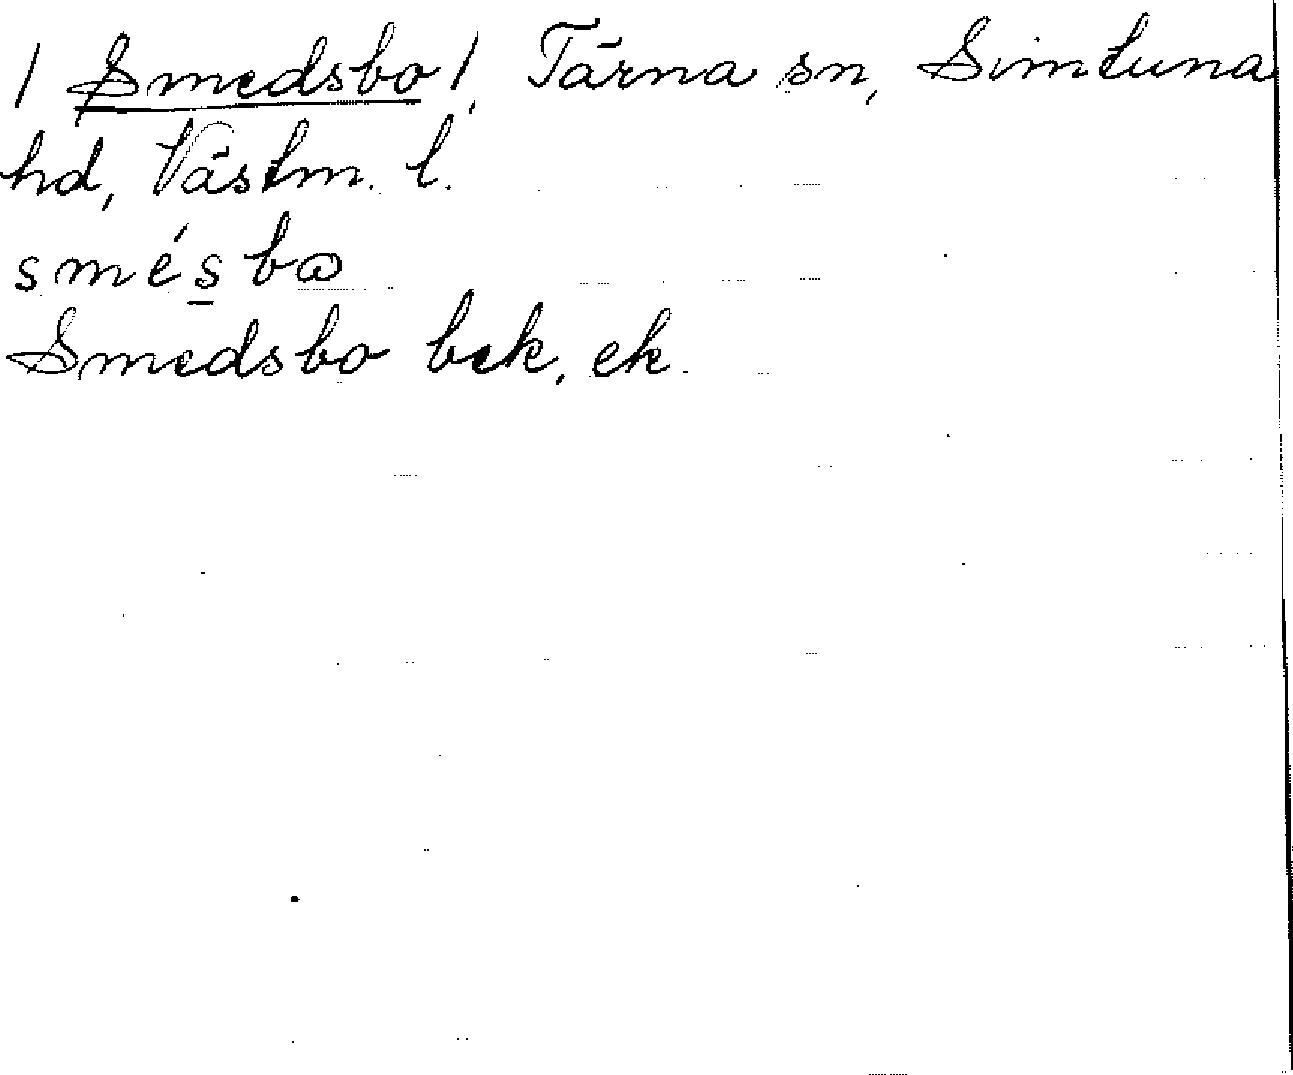 / Smedsbo /, Tärna sn, Simtuna
hd, Västm. l.
smésbω
Smedsbo bek, ek.